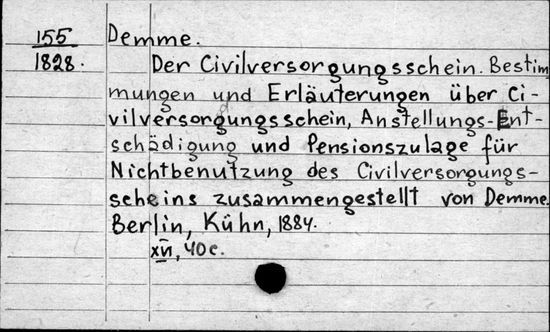 155 Demme.
1828. Der Civilversorgungsschein. Bestim
mungen und Erläuterungen über Ci-
vilversorgungsschein, Anstellungs-Ent-
schädigung und Pensionszulage für
Nichtbenutzung des Civilversorgungs-
scheins zusammengestellt von Demme.
Berlin, Kühn, 1884.
XII, 40 c.